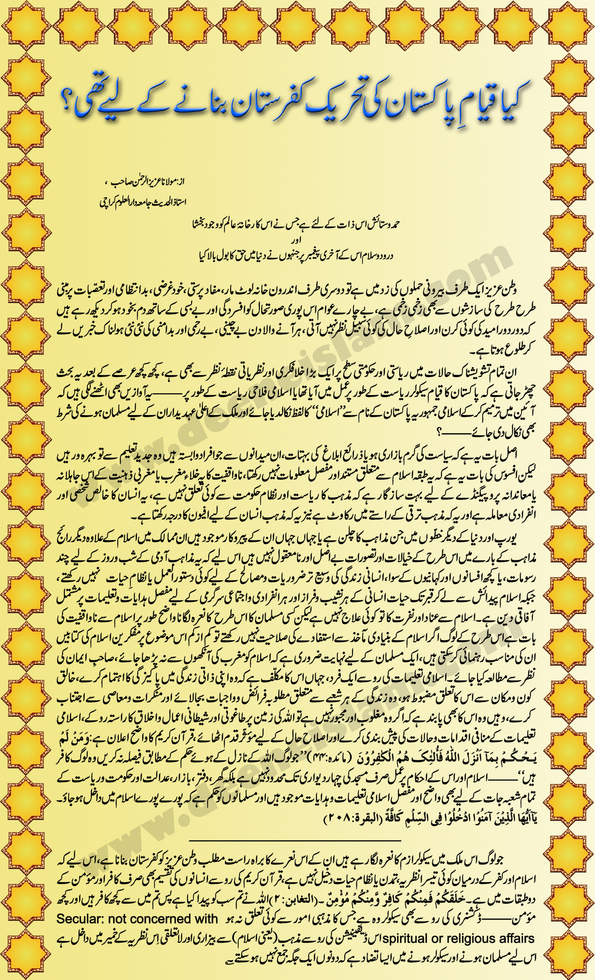 کیا قیامِ پاکستان کی تحریک کفرستان بنانے کے لیے تھی؟
از: مولانا عزیز الرحمٰن صاحب ،
استاذ الحدیث جامعہ دارالعلوم کراچی
حمد و ستائش اس ذات کے لئے ہے جس نے اس کارخانۂ عالم کو وجود بخشا
اور
درود و سلام اس کے آخری پیغمبر پر جنہوں نے دنیا میں حق کا بول بالا کیا
وطن عزیز ایک طرف بیرونی حملوں کی زد میں ہے تو دوسری طرف اندرون خانہ لوٹ مار، مفاد پرستی، خود غرضی، بدانتظامی اور تعصبات پر مبنی
طرح طرح کی سازشوں سے بھی زخمی زخمی ہے، بے چارے عوام اس پوری صورتحال کو افسردگی اور بے بسی کے ساتھ دم بخود ہو کر دیکھ رہے ہیں
کہ دور دور امید کی کوئی کرن اور اصلاحِ حال کی کوئی سبیل نظر نہیں آتی، ہر آنے والا دن بے چینی، بے رحمی اور بدامنی کی نئی نئی ہولناک خبریں لے
کر طلوع ہوتا ہے۔
ان تمام تشویشناک حالات میں ریاستی اور حکومتی سطح پر ایک بڑا خلا فکری اور نظریاتی نقطۂ نظر سے بھی ہے، کچھ کچھ عرصے کے بعد یہ بحث
چھڑ جاتی ہے کہ پاکستان کا قیام سیکولر ریاست کے طور پر عمل میں آیا تھا یا اسلامی فلاحی ریاست کے طور پر ——— یہ آوازیں بھی اٹھنے لگی ہیں کہ
آئین میں ترمیم کر کے اسلامی جمہوریہ پاکستان کے نام سے ”اسلامی“ کا لفظ نکال دیا جائے اور ملک کے اعلیٰ عہدیداران کے لیے مسلمان ہونے کی شرط
بھی نکال دی جائے ———؟
اصل بات یہ ہے کہ سیاست کی گرم بازاری ہو یا ذرائع ابلاغ کی بہتات، ان میدانوں سے جو افراد وابستہ ہیں وہ جدید تعلیم سے تو بہرہ ور ہیں
لیکن افسوس کی بات یہ ہے کہ یہ طبقہ اسلام سے متعلق مستند اور مفصل معلومات نہیں رکھتا، ناواقفیت کا یہ خلاء مغرب یا مغربی ذہنیت کے اس جاہلانہ
یا معاندانہ پروپیگنڈے کے لیے بہت سازگار ہے کہ مذہب کا ریاست اور نظامِ حکومت سے کوئی تعلق نہیں ہے، یہ انسان کا خالص شخصی اور
انفرادی معاملہ ہے اور یہ کہ مذہب ترقی کے راستے میں رکاوٹ ہے نیز یہ کہ مذہب انسان کے لیے افیون کا درجہ رکھتا ہے۔
یورپ اور دنیا کے دیگر خطوں میں جن مذاہب کا چلن ہے یا جہاں جہاں ان کے پیروکار موجود ہیں ان ممالک میں اسلام کے علاوہ دیگر رائج
مذاہب کے بارے میں اس طرح کے خیالات اور تصورات بے اصل اور نامعقول نہیں ہیں اس لیے کہ یہ مذاہب آدمی کے شب و روز کے لیے چند
رسومات، یا کچھ افسانوں اور کہانیوں کے سوا، انسانی زندگی کی وسیع تر ضروریات و مصالح کے لیے کوئی دستور العمل یا نظامِ حیات نہیں رکھتے،
جبکہ اسلام پیدائش سے لے کر قبر تک حیات انسانی کے ہر نشیب و فراز اور ہر انفرادی و اجتماعی سرگرمی کے لیے مفصل ہدایات و تعلیمات پر مشتمل
آفاقی دین ہے۔ اسلام سے عناد اور نفرت کا تو کوئی علاج نہیں ہے لیکن کسی مسلمان کا اس طرح کا نعرہ لگانا واضح طور پر اسلام سے ناواقفیت کی
بات ہے اس طرح کے لوگ اگر اسلام کے بنیادی مآخذ سے استفادے کی صلاحیت نہیں رکھتے تو کم از کم اس موضوع پر مفکرین اسلام کی کتابیں
ان کی مناسب رہنمائی کر سکتی ہیں، ایک مسلمان کے لیے نہایت ضروری ہے کہ اسلام کو مغرب کی آنکھوں سے نہ پڑھا جائے، صاحب ایمان کی
نظر سے مطالعہ کیا جائے۔ اسلامی تعلیمات کی رو سے ایک فرد، جہاں اس کا مکلف ہے کہ وہ اپنی ذاتی زندگی میں پاکیزگی کا اہتمام کرے، خالقِ
کون و مکان سے اس کا تعلق مضبوط ہو، وہ زندگی کے ہر شعبے سے متعلق مطلوبہ فرائض و واجبات بجا لائے اور منکرات و معاصی سے اجتناب
کرے، وہیں وہ اس کا بھی پابند ہے کہ اگر وہ مغلوب اور مجبور نہیں ہے تو اللہ کی زمین پر طاغوتی اور شیطانی اعمال و اخلاق کا راستہ روکے، اسلامی
تعلیمات کے منافی اقدامات و حالات کی پیش بندی کرے اور اصلاح حال کے لیے مؤثر قدم اٹھائے، قرآن کریم کا واضح اعلان ہے: وَمَنْ لَمْ
يَحْكُمْ بِمَا اَنْزَلَ اللّٰهُ فَأُولٰئِكَ هُمُ الْكٰفِرُوْنَ (مائدہ:۴۴) ”جو لوگ اللہ کے نازل کئے ہوئے حکم کے مطابق فیصلہ نہ کریں وہ لوگ کافر
ہیں“ ——— اسلام اور اس کے احکام پر عمل صرف مسجد کی چہار دیواری تک محدود نہیں ہے بلکہ گھر، دفتر، بازار، عدالت اور حکومت و ریاست کے
تمام شعبہ جات کے لیے بھی واضح اور مفصل اسلامی تعلیمات و ہدایات موجود ہیں اور مسلمانوں کو حکم ہے کہ پورے پورے اسلام میں داخل ہو جاؤ۔
يٰاَيُّهَا الَّذِيْنَ اٰمَنُوْا ادْخُلُوْا فِى السِّلْمِ كَآفَّةً (البقرة:۲۰۸)
جو لوگ اس ملک میں سیکولرازم کا نعرہ لگا رہے ہیں ان کے اس نعرے کا براہ راست مطلب وطن عزیز کو کفرستان بنانا ہے، اس لیے کہ
اسلام اور کفر کے درمیان کوئی تیسرا نظریہ، تمدن یا نظامِ حیات دخیل نہیں ہے، قرآن کریم کی رو سے انسانوں کی تقسیم بھی صرف کافر اور مؤمن کے
دو طبقات میں ہے۔ خَلَقَكُمْ فَمِنْكُمْ كَافِرٌ وَّمِنْكُمْ مُّؤْمِنٌ ۔ (التغابن:۲) اللہ نے تم سب کو پیدا کیا ہے پس تم میں سے کچھ کافر ہیں اور کچھ
مؤمن ——— ڈکشنری کی رو سے بھی سیکولر وہ ہے جس کا مذہبی امور سے کوئی تعلق نہ ہو Secular: not concerned with
spiritual or religious affairs اس ڈیفینیشن کی رو سے مذہب (یعنی اسلام) سے بیزاری اور لاتعلقی اس نظریہ کے خمیر میں داخل ہے
اس لیے مسلمان ہونے اور سیکولر ہونے میں ایسا تضاد ہے کہ دونوں ایک جگہ جمع نہیں ہو سکتے۔